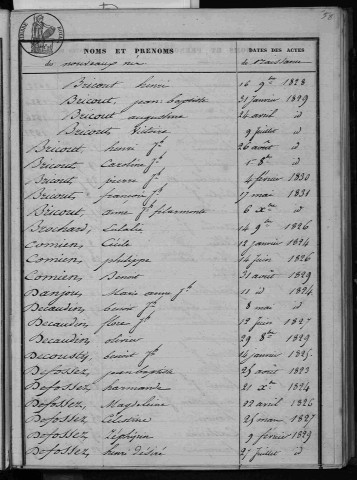 58
NOMS ET PRÉNOMS DATES DES ACTES
de nouveaux nés de naissance
Bricout henri 16 9bre 1828
Bricout, jean baptiste 31 janvier 1829
Bricout augustine 24 avril d
Bricout Victoire 9 juillet d
Bricout, henri J.h 26 août d
Bricout, Caroline J.h 1 8bre d
Bricout, pierre J.h 4 février 1830
Bricout, françois J.h 17 mai 1831
Bricout, anne J.h filarmonte 6 Xbre d
Brochard, Eulalie 14 9bre 1826
Comien, Cécile 12 janvier 1824
Comien, philippe 14 juin 1826
Comien, Benoit 31 août 1829
Danjou, Marie anne J.h 11 d 1824
Decaudin, benoit J.h 8 mai d
Decaudin, flore J.h 12 juin 1827
Decaudin, olivier 29 8bre 1829
Decousty, benoit J.h 14 janvier 1825
Defossez, jean baptiste 25 avril 1823
Defossez, harmande 21 Xbre 1824
Defossez, Magdeleine 12 avril 1826
Defossez, Célestine 25 mars 1827
Defossez, Zéphirin 9 février 1829
Defossez, henri désiré 27 juillet d